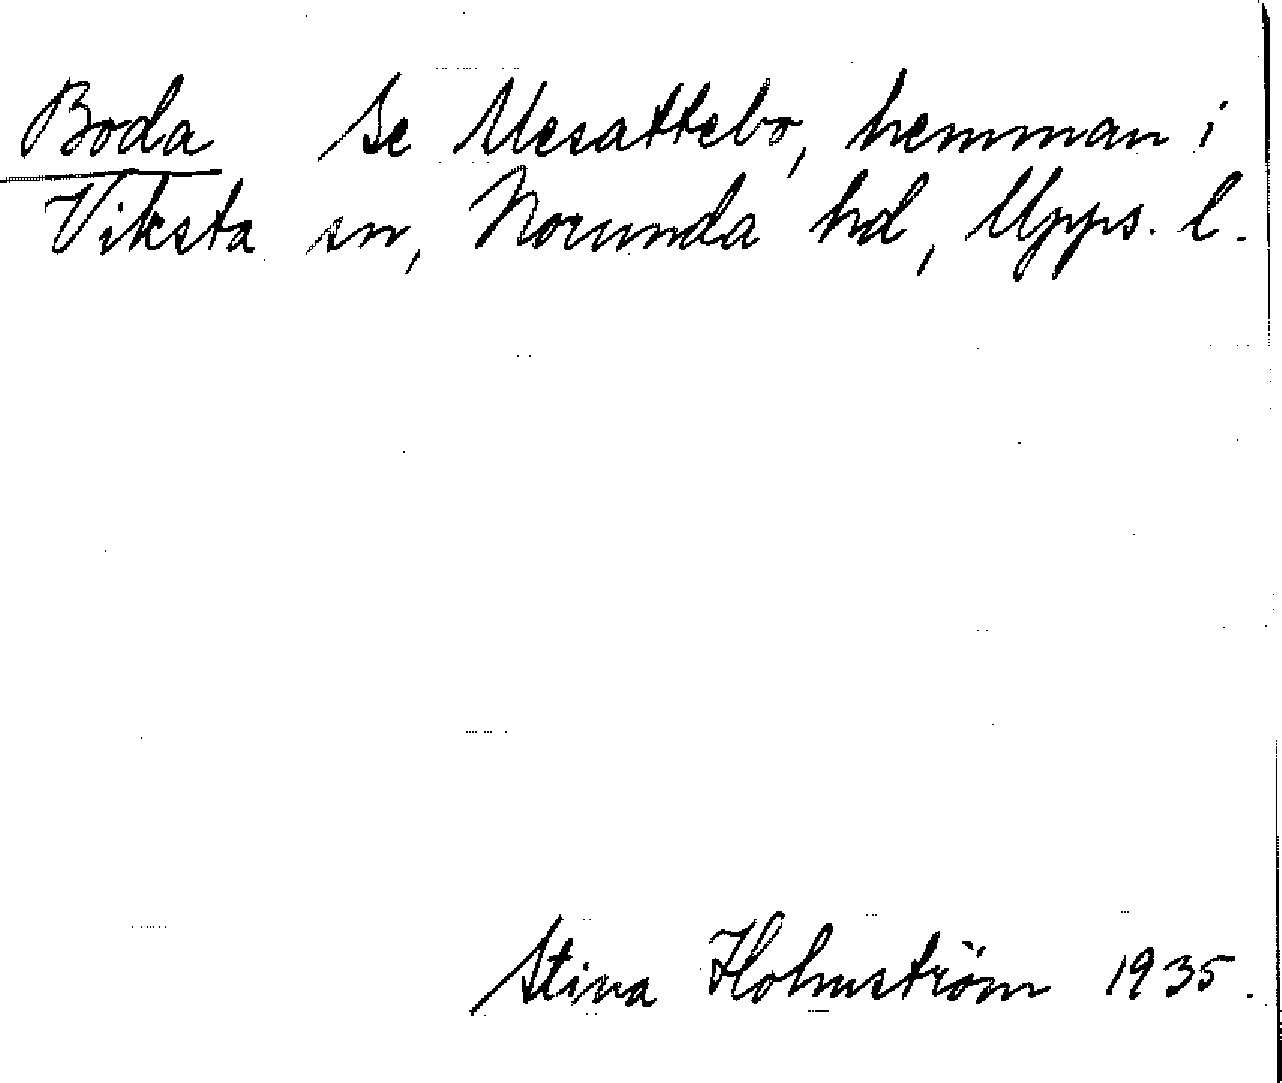 Boda Se Mesattebo, hemman i
Viksta sn, Norunda hd, Upps. l.
Stina Holmström 1935.